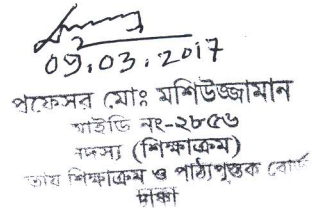 09.03.2017
প্রফেসর মোঃ মশিউজ্জামান
আইডি নং-২৮৫৬
সদস্য (শিক্ষাক্রম)
শিক্ষাক্রম ও পাঠ্যপুস্তক বোর্ড
ঢাকা